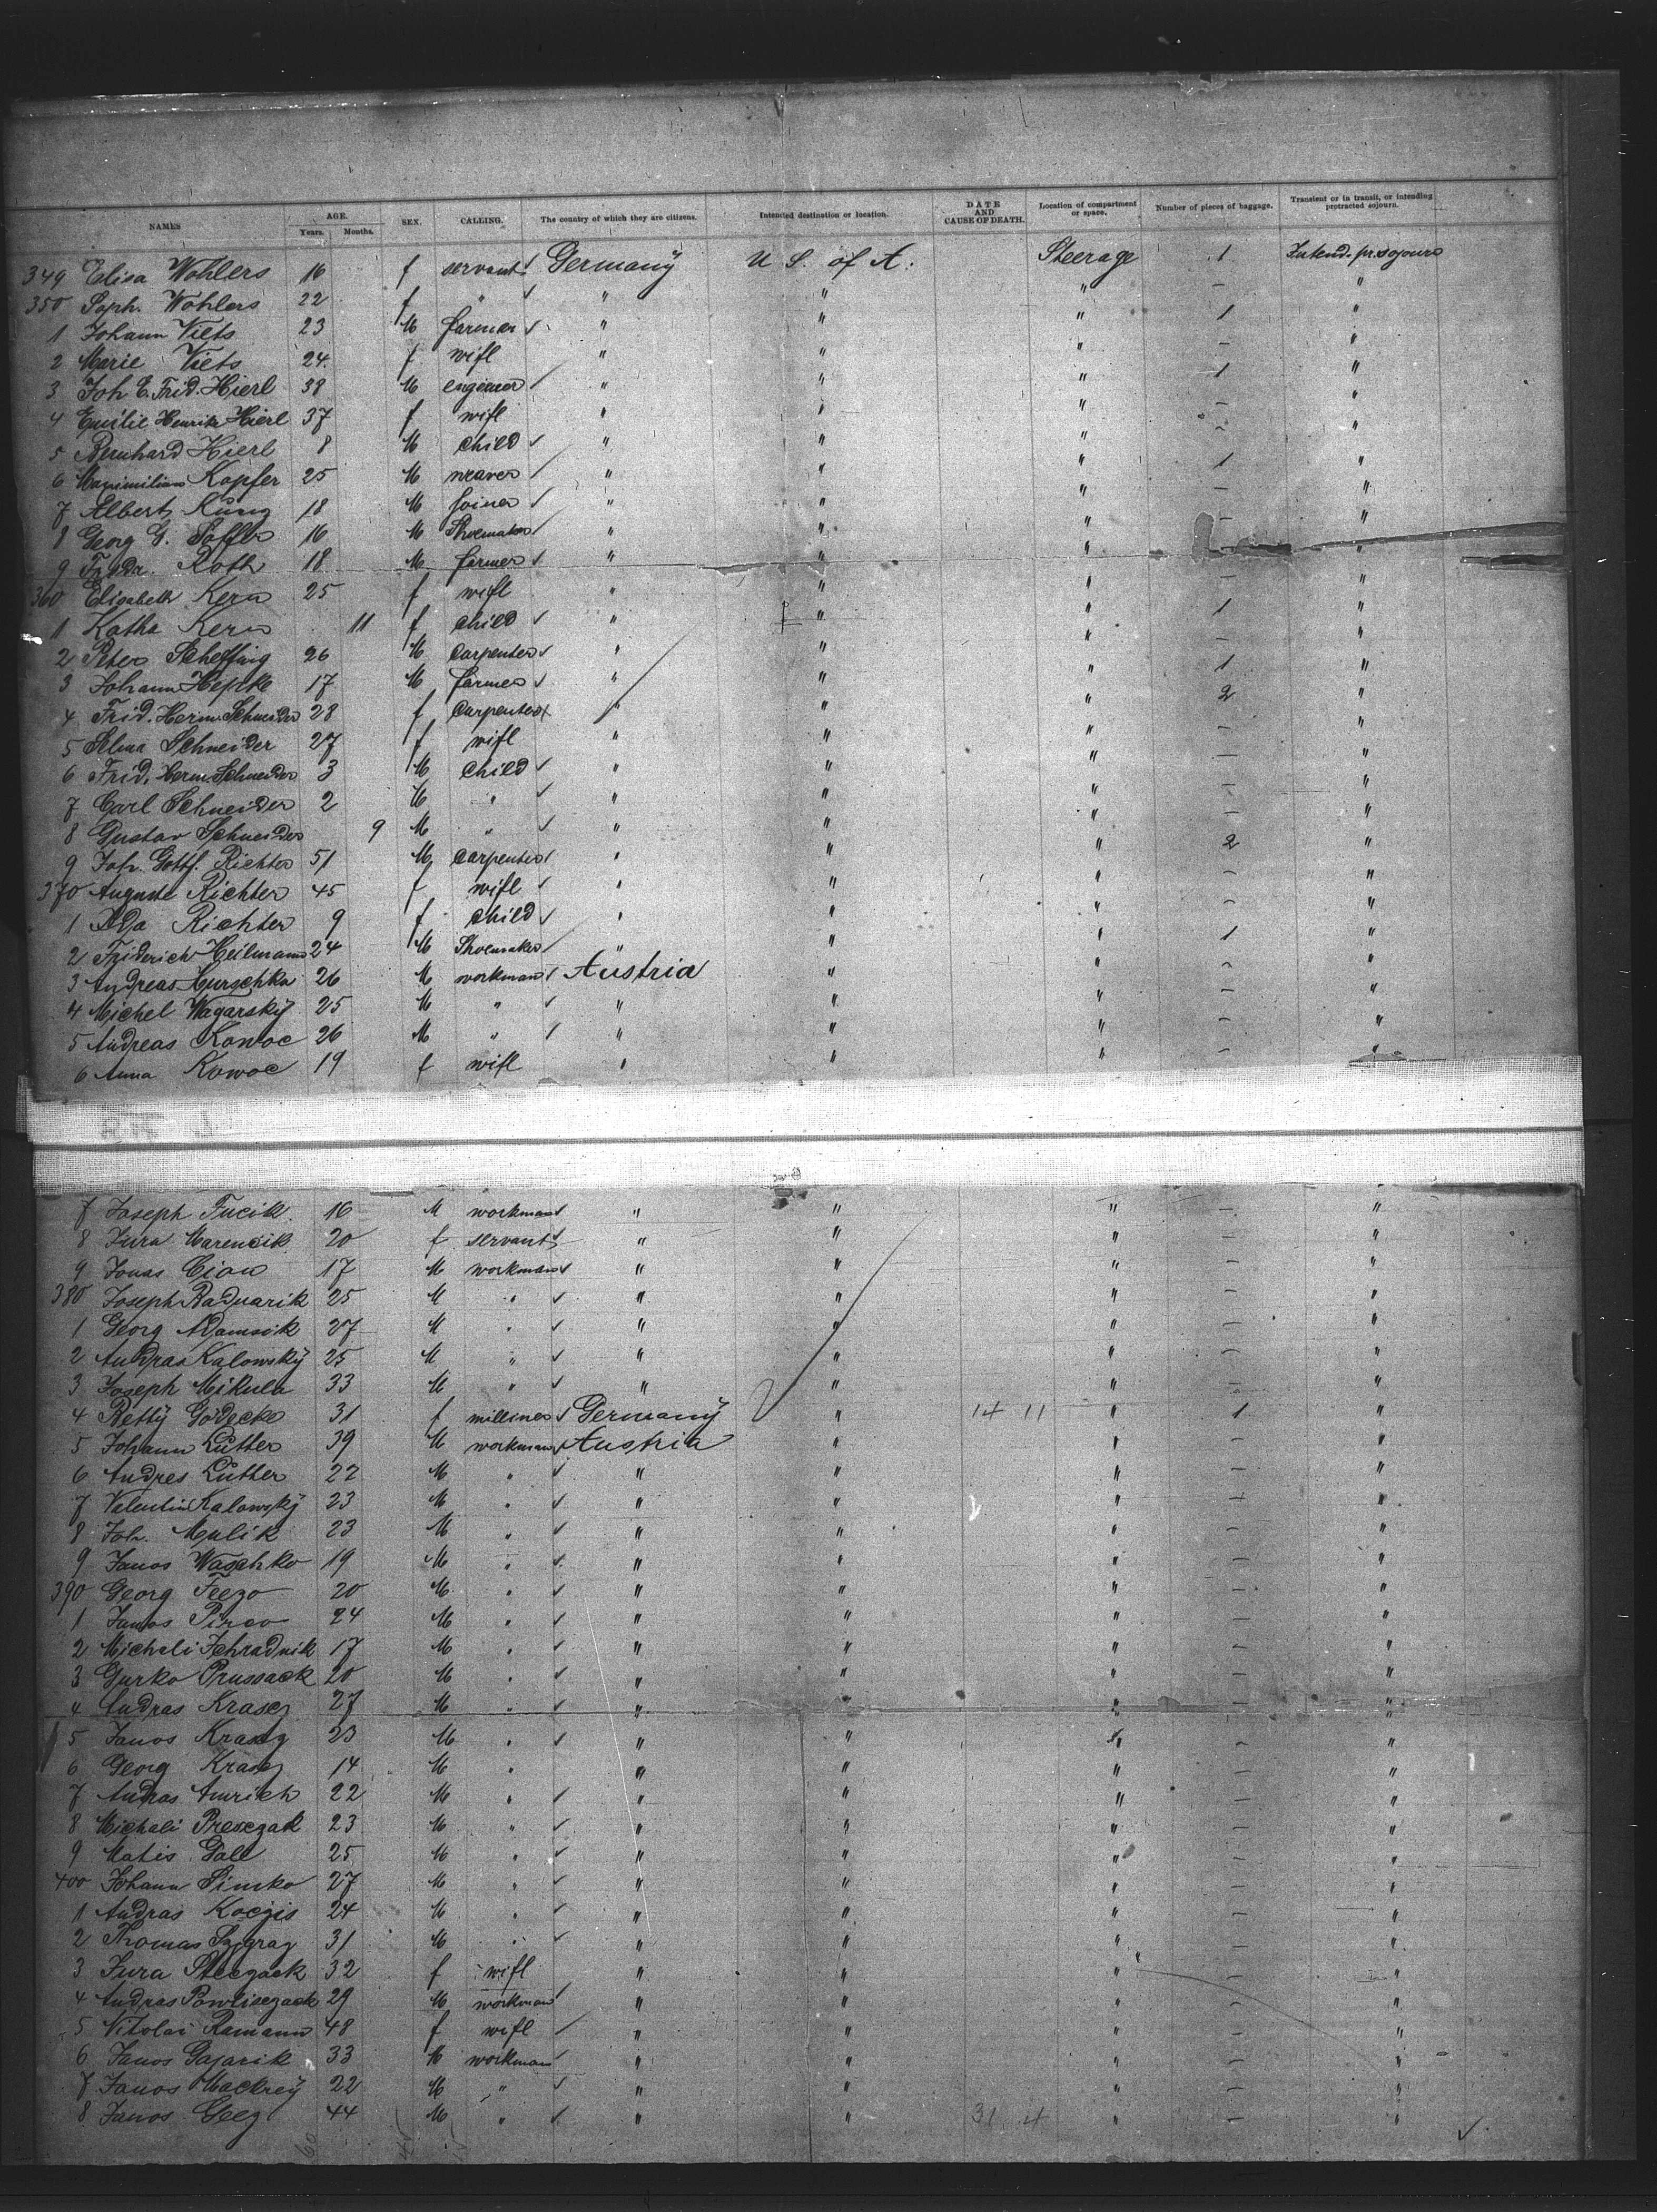 NAMES AGE. Years. Months. SEX. CALLING. The country of which they are citizens. Intended destination or location. DATE AND CAUSE OF DEATH. Location of compartment or space. Number of pieces of baggage. Transient or in transit, or intending protracted sojourn.
349 Elisa Wohlers 16 f servant Germany U S. of A. Steerage 1 Intend. pr. sojourn
350 Soph. Wohlers 22 f " " " " - "
1 Johann Viets 23 M farmer " " " 1 "
2 Marie Viets 24 f wife " " " - "
3 Joh E. Frid. Hierl 38 M engineer " " " 1 "
4 Emilie Henrike Hierl 37 f wife " " " - "
5 Bernhard Hierl 8 M child " " " - "
6 Maximilian Kopfer 25 M weaver " " " 1 "
7 Albert Küng 18 M joiner " " " - "
8 Georg G. 16 M Shoemaker " " " - "
9 Roth 18 M farmer " " " "
360 Elisabeth Kern 25 f wife " " " - "
1 Katha Kern 11 f child " " " 1 "
2 Peter Scheffing 26 M carpenter " " " - "
3 Johann Hepke 17 M farmer " " " 1 "
4 Frid. Herm. Schneider 28 f carpenter " " " 2 "
5 Selma Schneider 27 f wife " " " - "
6 Frid. Herm. Schneider 3 M child " " " - "
7 Carl Schneider 2 M " " " " - "
8 Gustav Schneider 9 M " " " " - "
9 Joh. Gottf. Richter 51 M carpenter " " " 2 "
370 Auguste Richter 45 f wife " " " - "
1 Ida Richter 9 f child " " " - "
2 Friderich Heilmann 24 M Shoemaker " " " 1 "
3 Andreas Hurschka 26 M workman Austria " " - "
4 Michel Wagarský 25 M " " " " - "
5 Andreas Kowoc 26 M " " " " - "
6 Anna Kowoc 19 f wife " " " - "
7 Joseph Fucik 16 M workman " " " - "
8 Jura Marencik 20 f servant " " " - "
9 Jonas Cion 17 M workman " " " - "
380 Joseph Badnarik 25 M " " " " - "
1 Georg Adamsik 27 M " " " " - "
2 Andras Kalowský 25 M " " " " - "
3 Joseph Mikula 33 M " " " " - "
4 Betty Gödecke 31 f milliner Germany " 14 11 " 1 "
5 Johann Luther 39 M workman Austria " " - "
6 Andres Luther 22 M " " " " - "
7 Valentin Kalowsky 23 M " " " " - "
8 Joh. Mulik 23 M " " " " - "
9 Janos Waschko 19 M " " " " - "
390 Georg Feezo 20 M " " " " - "
1 Janos Pirco 24 M " " " " - "
2 Michali Schradnik 17 M " " " " - "
3 Gurko Prussack 20 M " " " " - "
4 Andras Krasez 27 M " " " " - "
5 Janos Krasez 23 M " " " " - "
6 Georg Krasez 14 M " " " " - "
7 Andras Amrich 22 M " " " " - "
8 Michali Presczak 23 M " " " " - "
9 Matis Gall 25 M " " " " - "
400 Johann Simko 27 M " " " " - "
1 Andras Koczis 24 M " " " " - "
2 Thomas 31 M " " " " - "
3 Jura Steczack 32 f wife " " " - "
4 Andras Powlisczack 29 M workman " " " - "
5 Nitolai Ramann 48 f wife " " " - "
6 Janos Gajarik 33 M workman " " " - "
7 Janos Mackrey 22 M " " " " - "
8 Janos Geez 44 M " " " 31 4 " - "